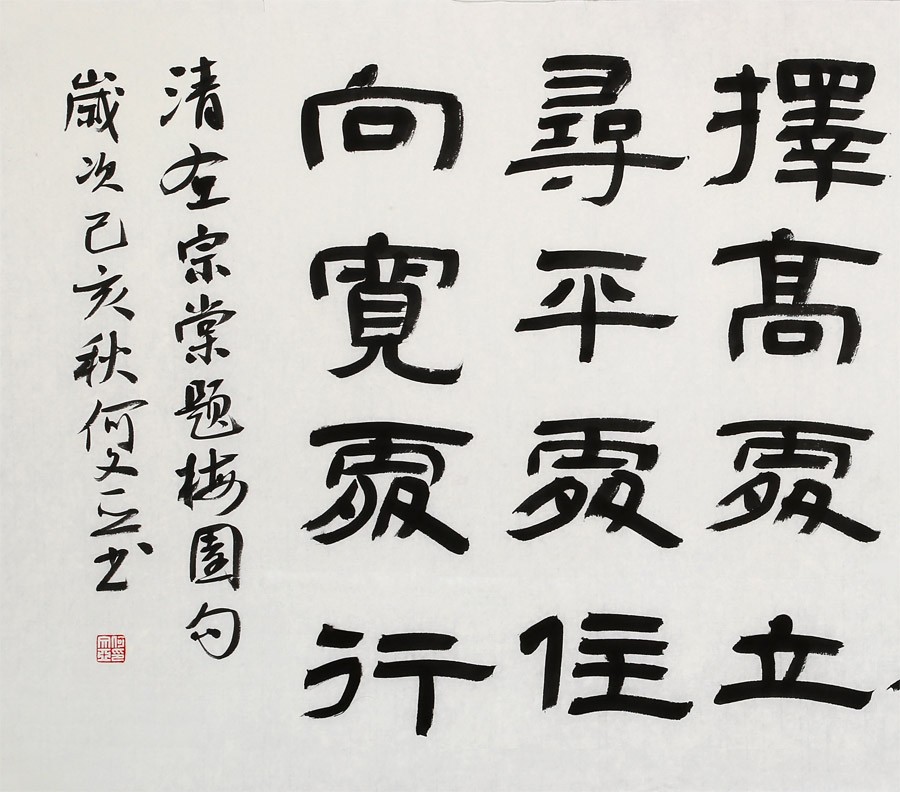 擇高處立
尋平處住
向寬處行
清左宗棠題梅園句
歲次己亥秋何文正书